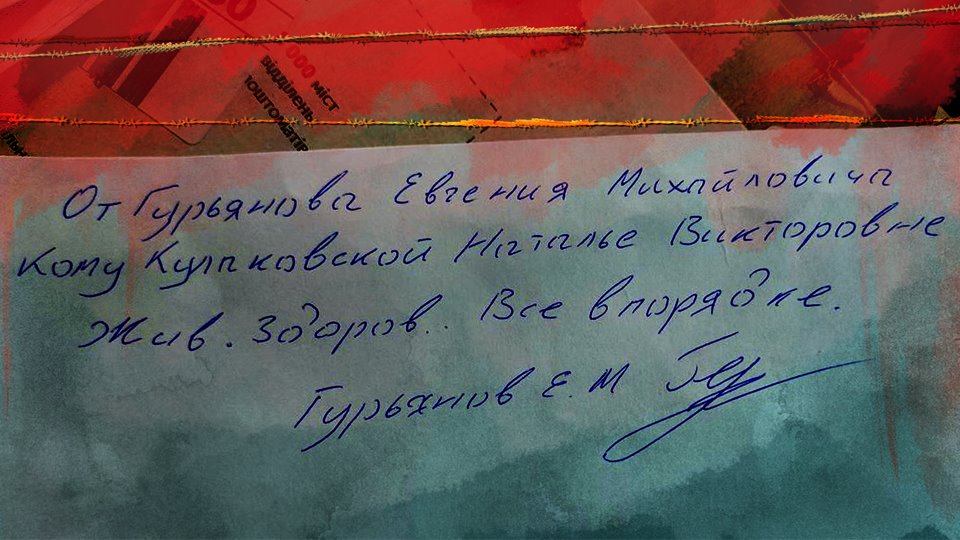 000 МІСТ
ВІДДІЛЕНЬ
ПОШТОМАТІВ
От Гурьянова Евгения Михайловича
Кому Кулаковской Наталье Викторовне
Жив. Здоров.. Все впорядке.
Гурьянов Е. М